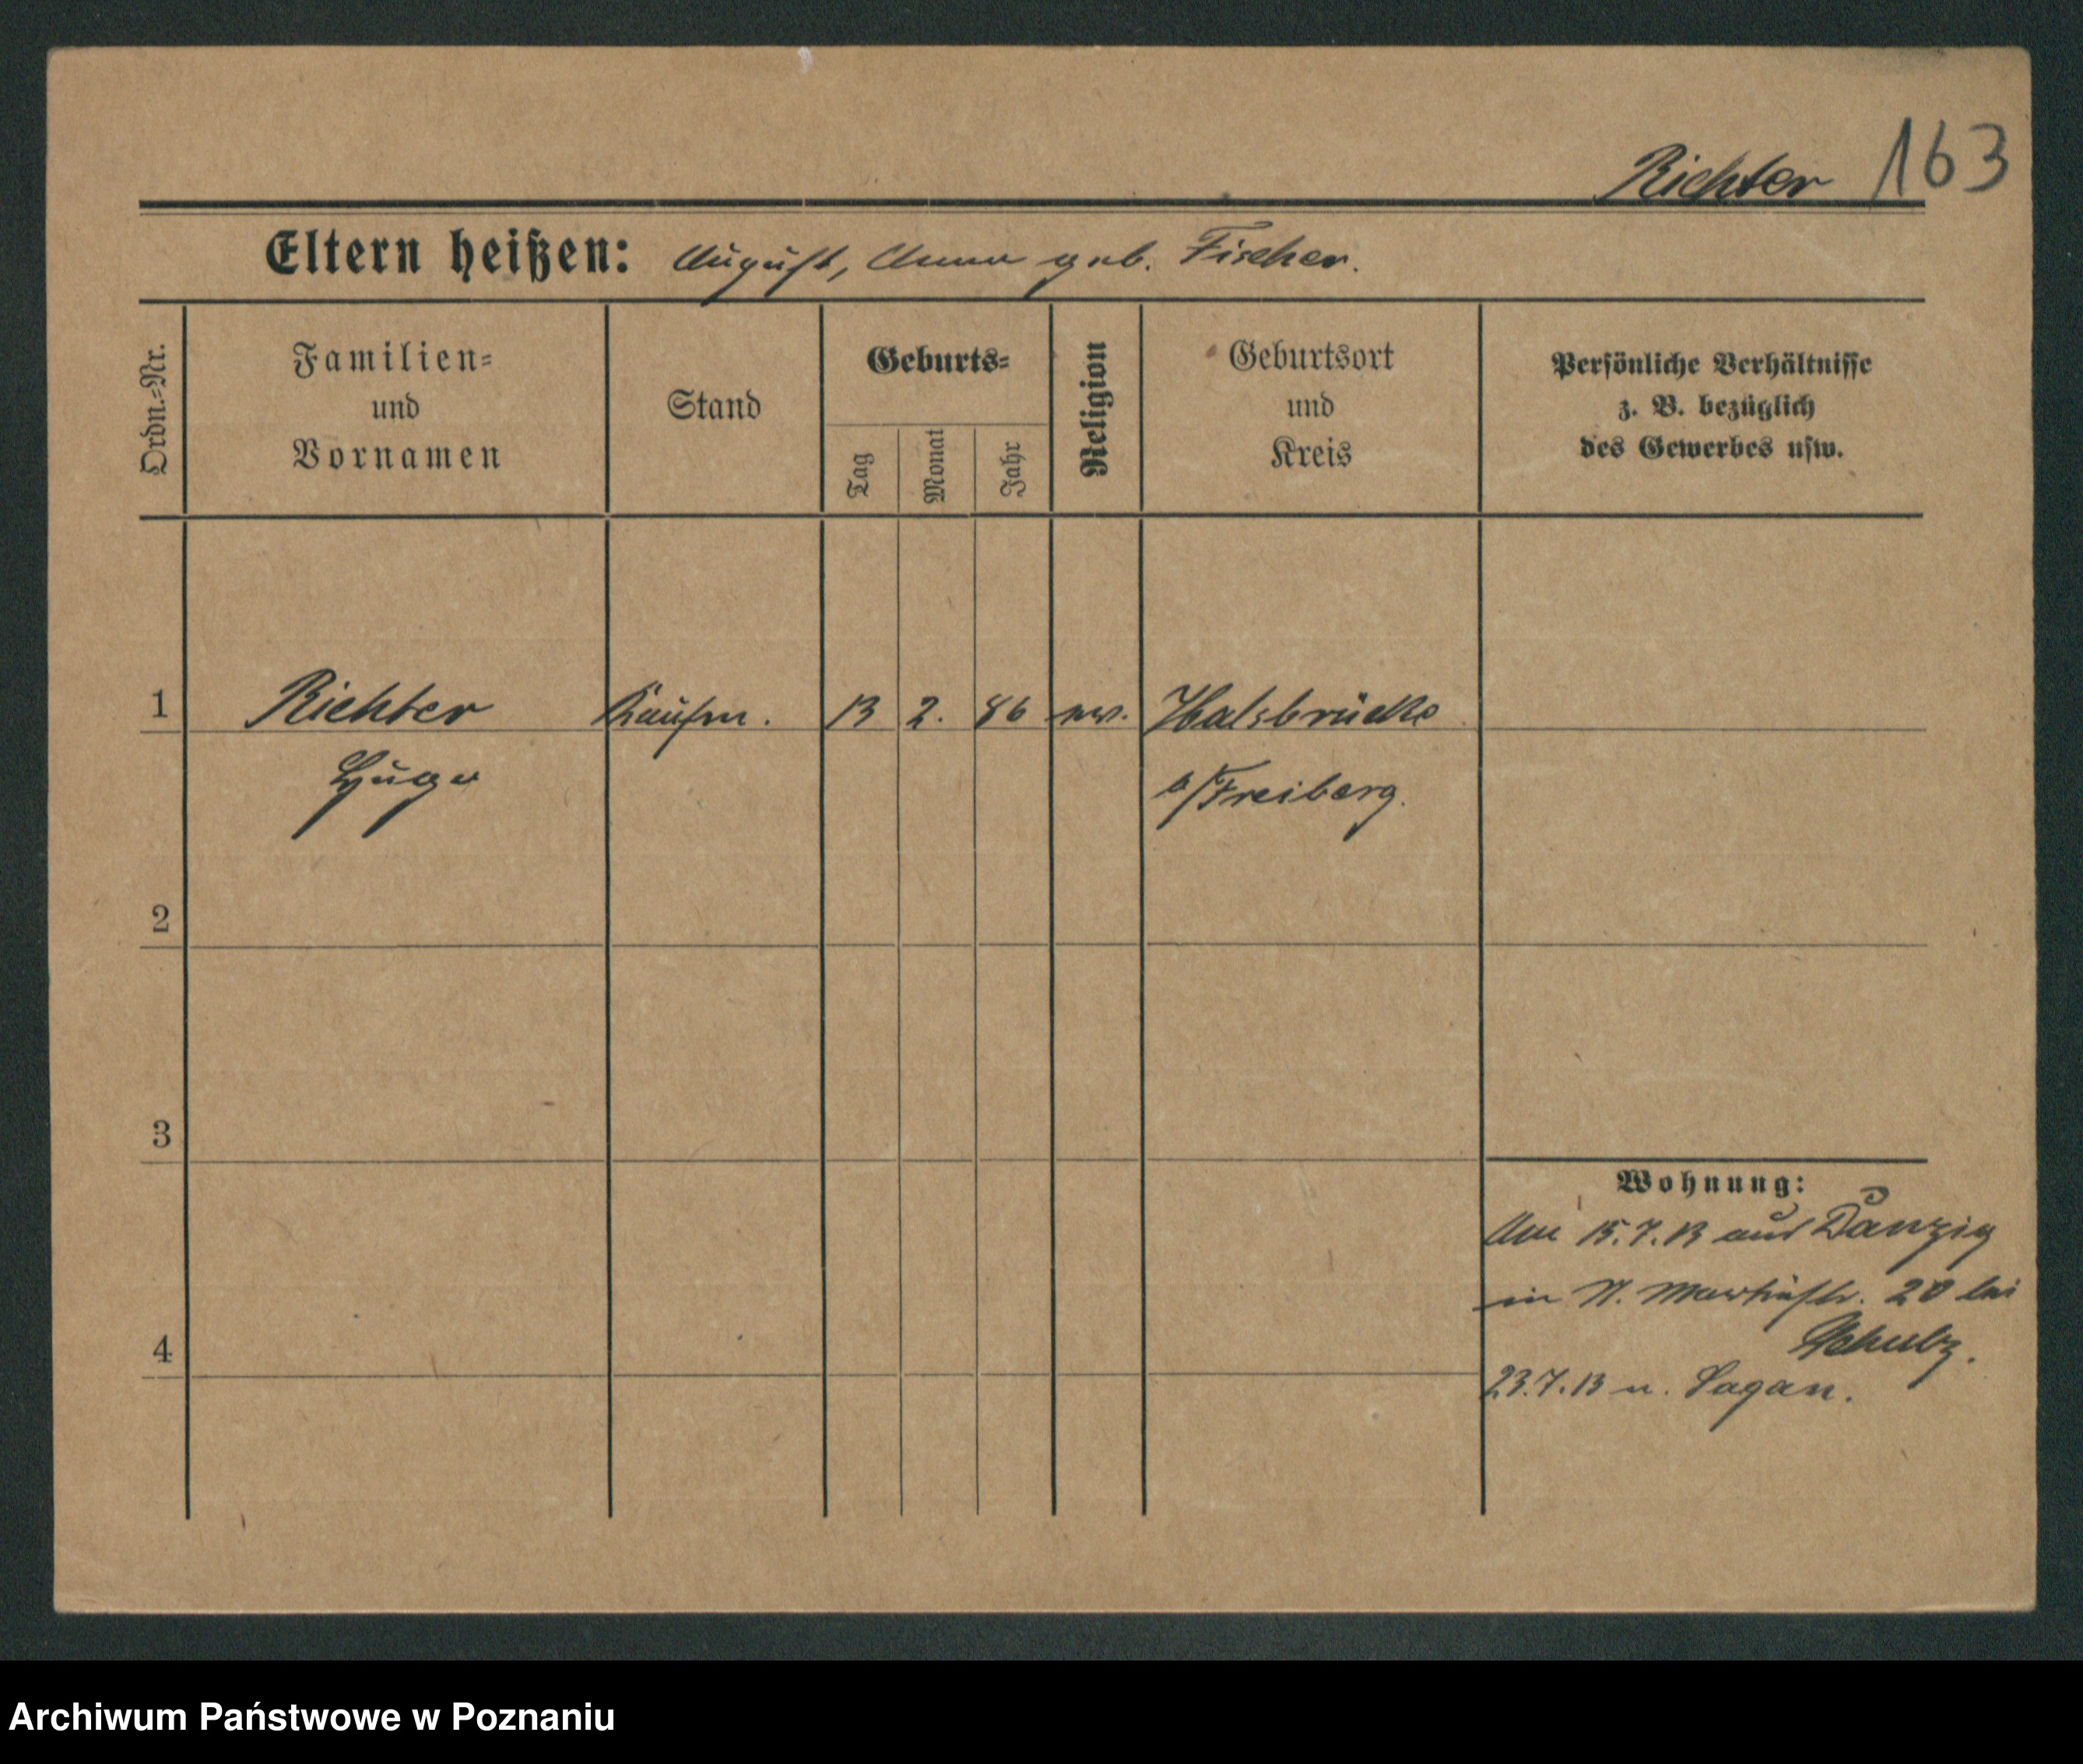 Richter 163
Eltern heißen: August, Anna geb. Fischer.
Ordn.-Nr.
Familien-
und
Vornamen
Stand
Geburts-
Tag
Monat
Jahr
Religion
Geburtsort
und
Kreis
Persönliche Verhältnisse
z. B. bezüglich
des Gewerbes usw.
1 Richter Kaufm. 13 2. 86 ev. Halsbrücke
Hugo b/Freiberg.
2
3
4
Wohnung:
Am 15.7.13 aus Danzig
in St. Martinstr. 20 bei
Schulz.
23.7.13 n. Sagan.
Archiwum Państwowe w Poznaniu